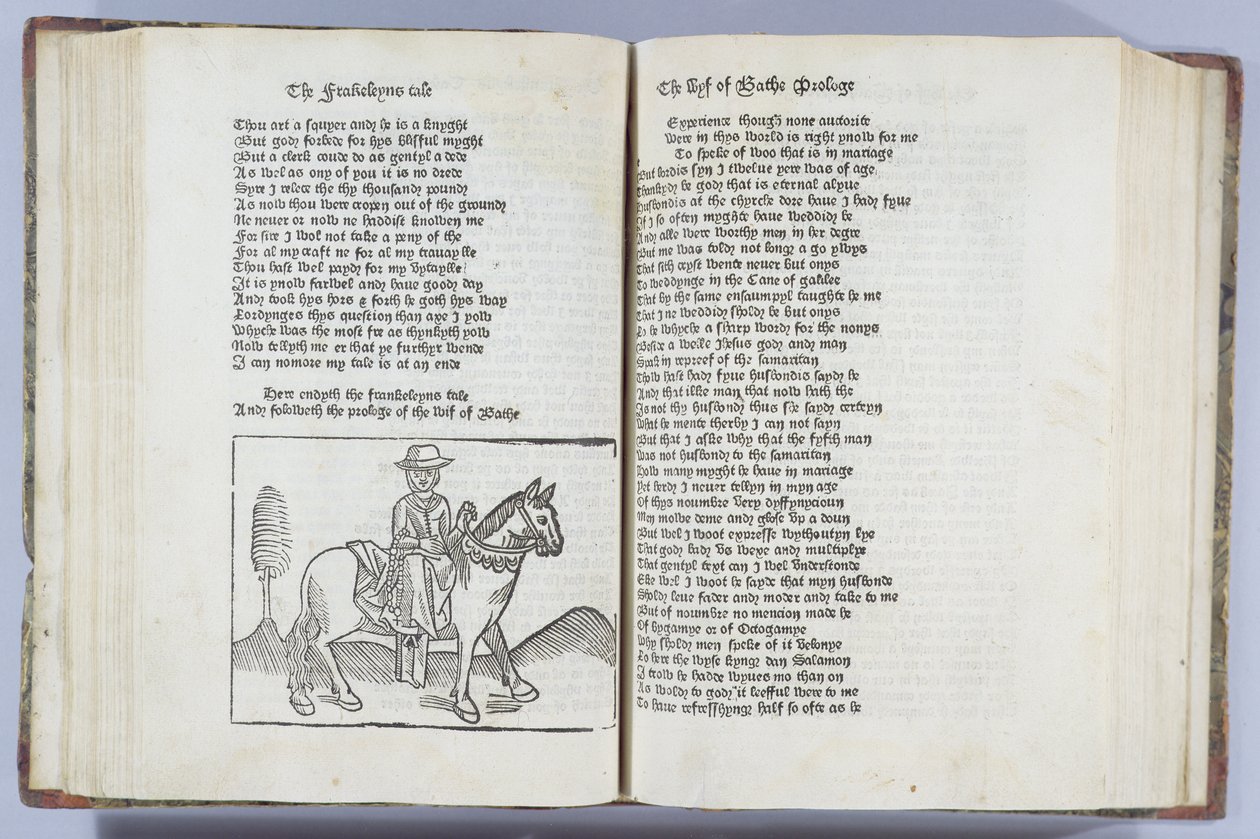 The Frankeleyns tale
Thou art a squyer and he is a knyght
But god forbede for hys blisful myght
But a clerk coude do as gentyl a dede
As wel as ony of you it is no drede
Syre I relece the thy thousand pound
As now thou were cropen out of the ground
Ne never or now ne haddist knowen me
For sire I wol not take a peny of the
For al my craft ne for al my travaylle
Thou hast wel payd for my vytaylle
It is ynow farwel and haue good day
And took hys hors & forth he goth hys way
Lordynges thys question than axe I yow
Whyche was the most fre as thynkyth yow
Now tellyth me er that ye furthyr wende
I can nomore my tale is at an ende
Here endyth the frankeleyns tale
And foloweth the prologe of the wif of Bathe
The wyf of Bathe Prologe
Experience though none auctorite
Were in thys world is right ynow for me
To speke of woo that is in mariage
But lordis syn I twelue yere was of age
Thankyd be god that is eternal alyue
Husbondis at the chyrche dore haue I had fyue
If I so often myghte haue weddid be
And alle were worthy men in her degre
But me was told not longe a go ywys
That sith cryst wente never but onys
To weddynge in the Cane of galilee
That by the same ensaumpyl taughte he me
That I ne weddid shold be but onys
Lo he whyche a sharp word for the nonys
Beside a welle Jhesus god and man
Spak in repreef of the samaritan
Thow hast had fyue husbondis sayd he
And that ilke man that now hath the
Is not thy husbond thus she sayd certeyn
What he mente therby I can not sayn
But that I aske why that the fyfth man
Was not husbond to the samaritan
How many myght he haue in mariage
Yet herd I never tellyn in myn age
Of thys noumbre very dyffynycioun
Men mowe deme and glose vp a doun
But wel I woot expresse wythoutyn lye
That god bad vs wexe and multiplye
That gentyl text can I wel vnderstonde
Eke wel I woot he sayde that myn husbonde
Shold leue fader and moder and take to me
But of noumbre no mencion made he
Of bygamye or of Octogamye
Why shold men speke of it velonye
Lo here the wyse kynge dan Salamon
I trow he hadde wyues mo than on
As wold to god it leefful were to me
To haue refresshynge half so ofte as he